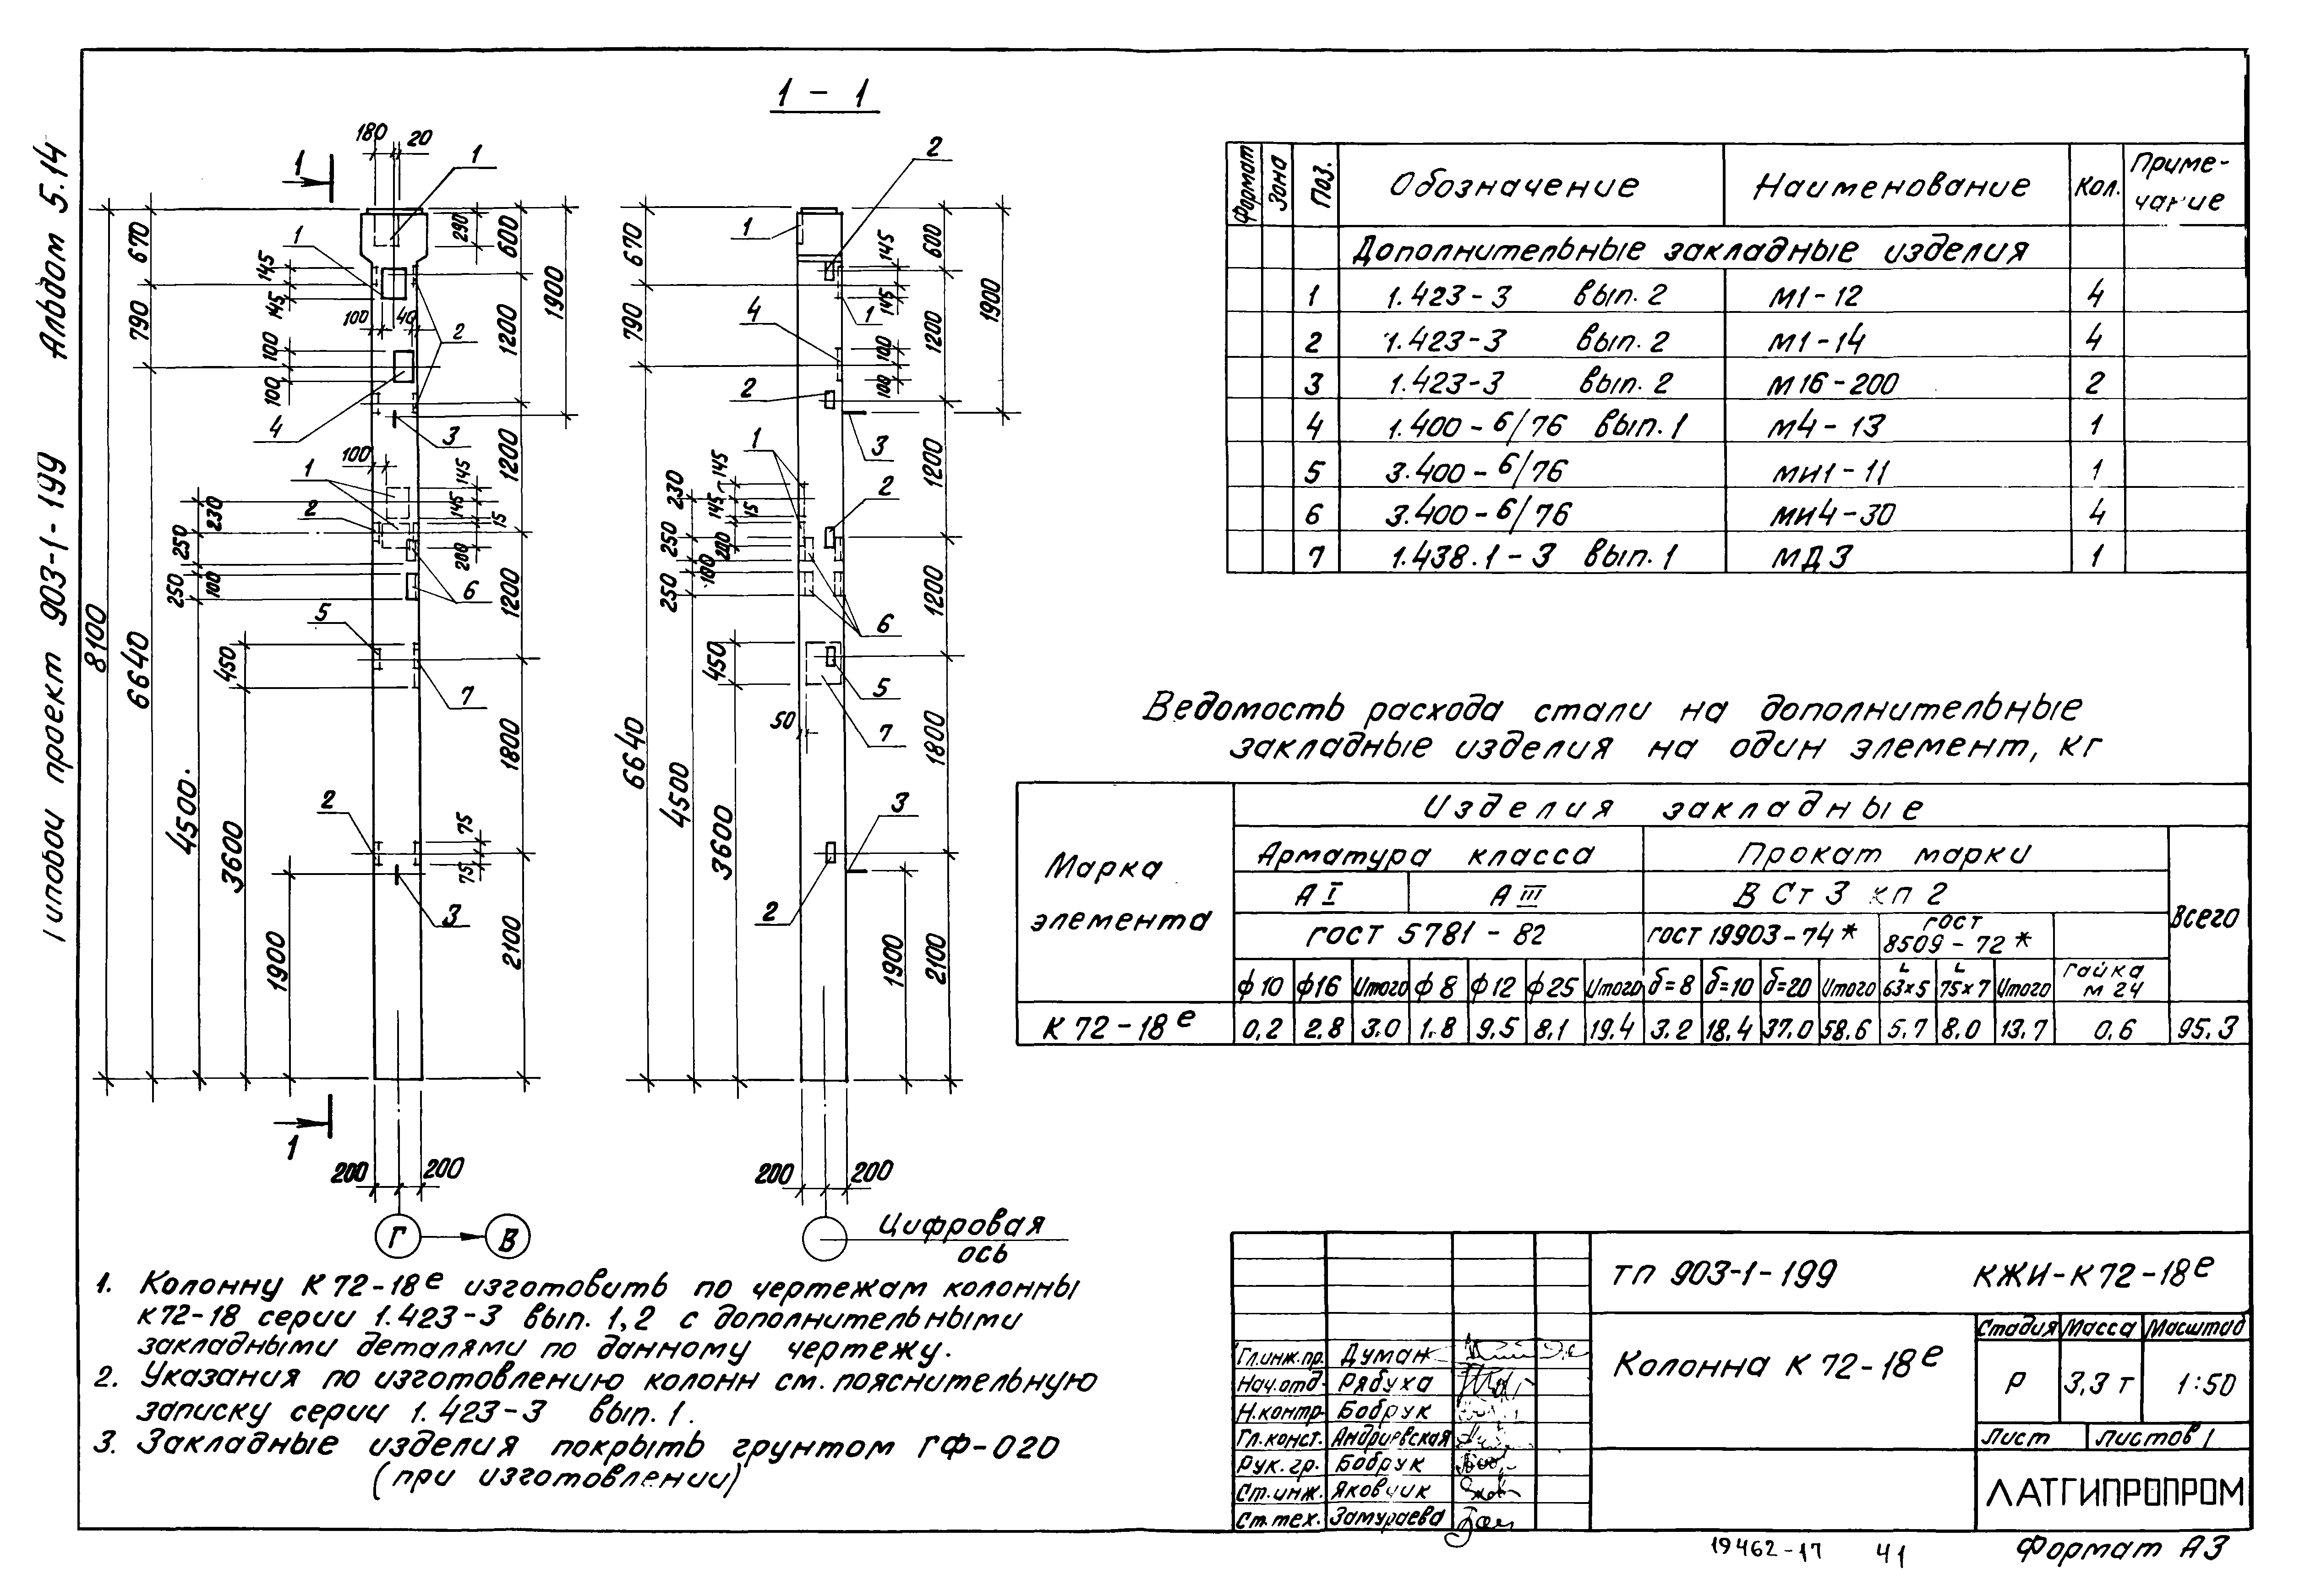 Альбом 5.14
Типовой проект 903-1-199
1 - 1
180 20
1
1
1
2
3
4
5
6
7
8100
670
790
6640
4500.
3600
1900
450
145
145
100
100
100 40
100
230
250
250
100
290
600
1200
1900
1200
1200
1800
2100
145
145
15
200
75
75
200 200
Г В
670
790
6640
4500
3600
450
50
230
250
250
100
145
145
15
200
145
145
100
100
600
1200
1900
1200
1200
1800
2100
1900
200 200
Цифровая
ось
Формат Зона Поз. Обозначение Наименование Кол. Приме-
чание
Дополнительные закладные изделия
1 1.423-3 вып. 2 М1-12 4
2 1.423-3 вып. 2 М1-14 4
3 1.423-3 вып. 2 М16-200 2
4 1.400-6/76 вып. 1 М4-13 1
5 3.400-6/76 МИ1-11 1
6 3.400-6/76 МИ4-30 4
7 1.438.1-3 вып. 1 МД3 1
Ведомость расхода стали на дополнительные
закладные изделия на один элемент, кг
Марка
элемента
Изделия закладные
Арматура класса Прокат марки
А I А III В Ст 3 кп 2 Всего
ГОСТ 5781-82 ГОСТ 19903-74* ГОСТ
8509-72*
ф10 ф16 Итого ф8 ф12 ф25 Итого δ=8 δ=10 δ=20 Итого L 63×5 L 75×7 Итого Гайка М 24
К 72-18е 0,2 2,8 3,0 1,8 9,5 8,1 19,4 3,2 18,4 37,0 58,6 5,7 8,0 13,7 0,6 95,3
1. Колонну К 72-18е изготовить по чертежам колонны
К72-18 серии 1.423-3 вып. 1,2 с дополнительными
закладными деталями по данному чертежу.
2. Указания по изготовлению колонн см. пояснительную
записку серии 1.423-3 вып. 1.
3. Закладные изделия покрыть грунтом ГФ-020
(при изготовлении)
ТП 903-1-199 КЖИ-К72-18е
Колонна К 72-18е
Стадия Масса Масштаб
Р 3,3 т 1:50
Лист Листов 1
ЛАТГИПРОПРОМ
Гл.инж.пр. Думан
Нач.отд. Рябуха
Н.контр. Бобрук
Гл.конст. Андриевская
Рук.гр. Бобрук
Ст.инж. Яковчик
Ст.тех. Замураева
19462-17 41
Формат А3